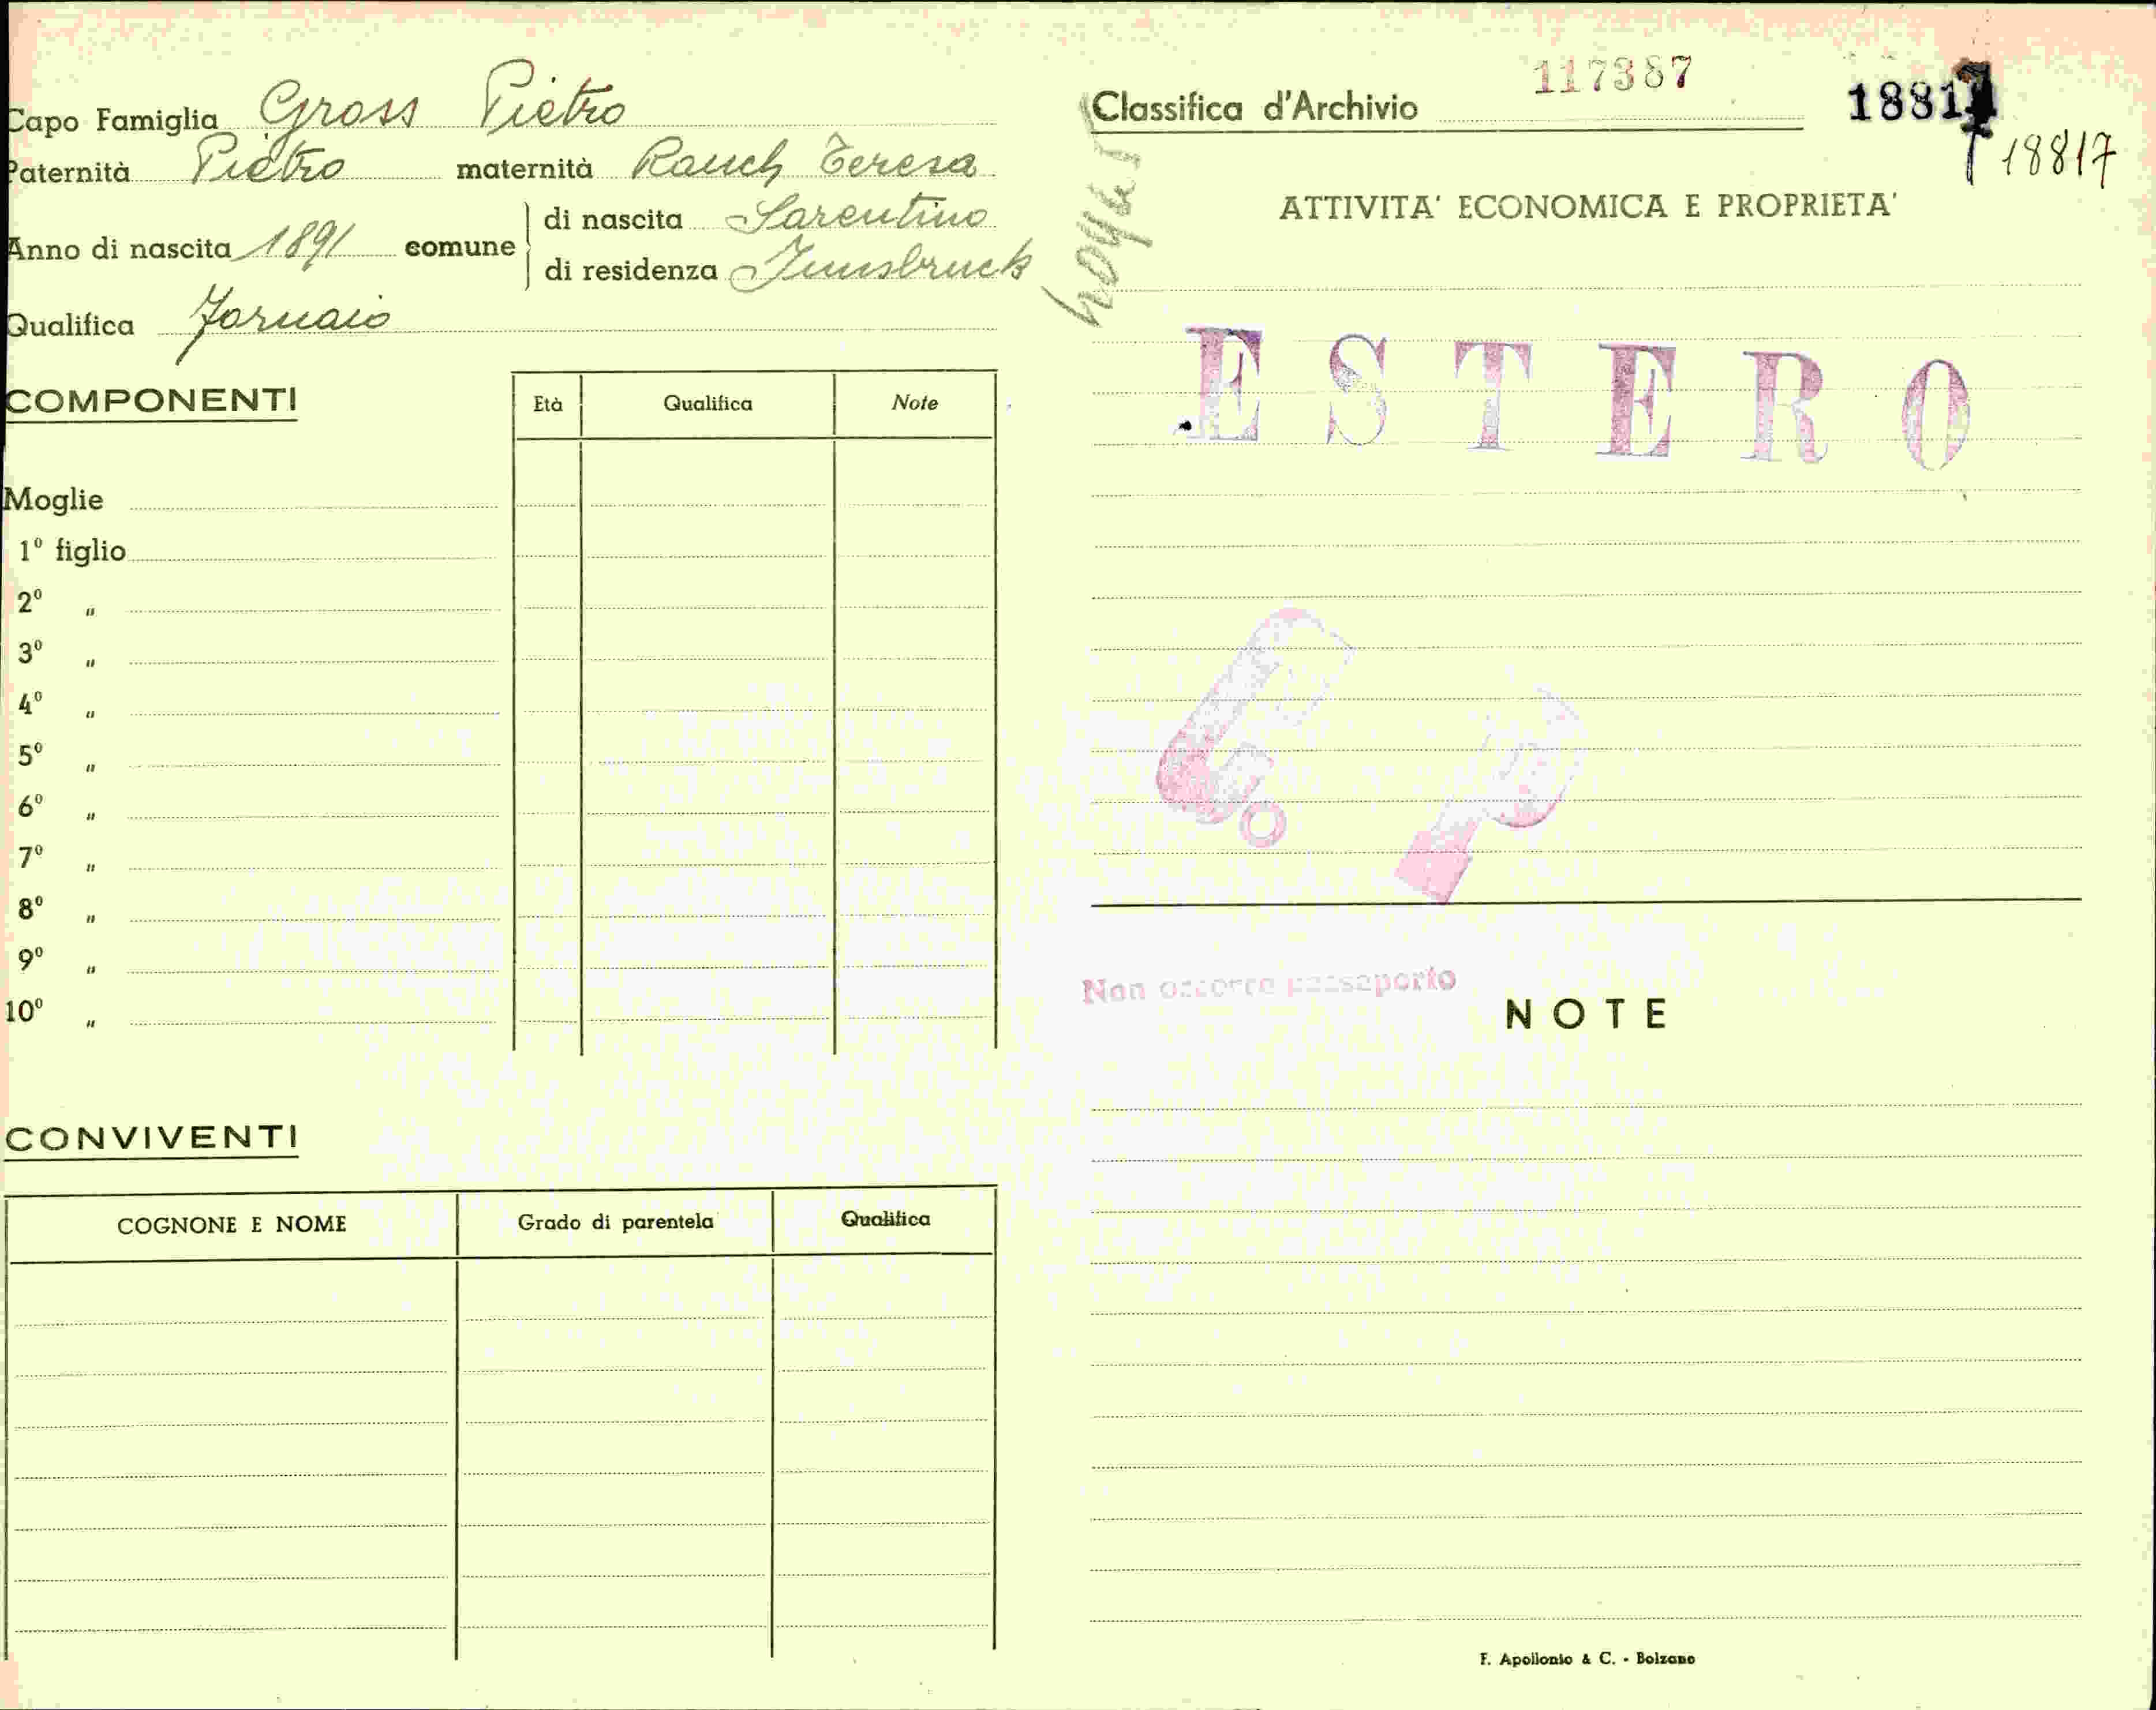 Capo Famiglia Gross Pietro
Paternità Pietro maternità Rauch Teresa
Anno di nascita 1891 comune di nascita Sarentino
di residenza Innsbruck
Qualifica Fornaio
COMPONENTI Età Qualifica Note
Moglie
1º figlio
2º "
3º "
4º "
5º "
6º "
7º "
8º "
9º "
10º "
CONVIVENTI
COGNONE E NOME Grado di parentela Qualifica
Classifica d'Archivio 117387
18817
18817
ATTIVITA' ECONOMICA E PROPRIETA'
ESTERO
Non occorre passaporto
NOTE
F. Apollonio & C. - Bolzano